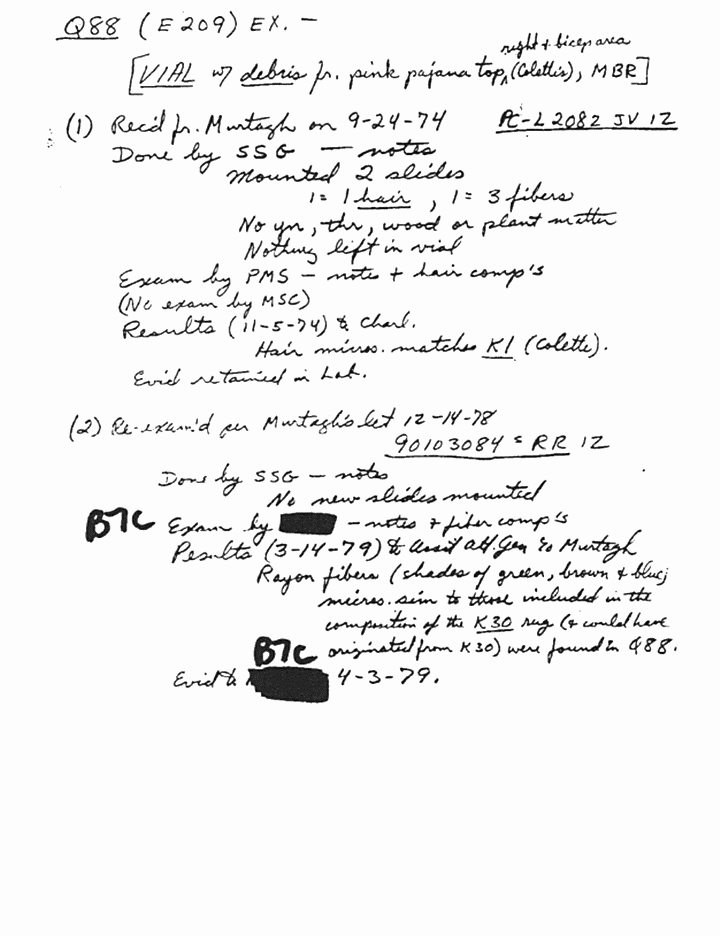 Q88 (E209) EX. —
right & bicep area
[VIAL w/ debris fr. pink pajama top, (Colette's), MBR]
(1) Rec'd fr. Murtagh on 9-24-74 PC-L2082 JV 1Z
Done by SSG — notes
Mounted 2 slides
1 = 1 hair, 1 = 3 fibers
No yn, thr, wood or plant matter
Nothing left in vial
Exam by PMS — notes + hair comp's
(No exam by MSC)
Results (11-5-74) to Charl.
Hair micros. matches K1 (Colette).
Evid retained in Lab.
(2) Re-exam'd per Murtagh's let 12-14-78
90103084 = RR 1Z
Done by SSG — notes
No new slides mounted
B7C Exam by — notes + fiber comp's
Results (3-14-79) to Assit Att. Gen to Murtagh
Rayon fibers (shades of green, brown & blue;
micros. sim to those included in the
composition of the K30 rug (& could have
B7C originated from K30) were found in Q88.
Evid to 4-3-79.